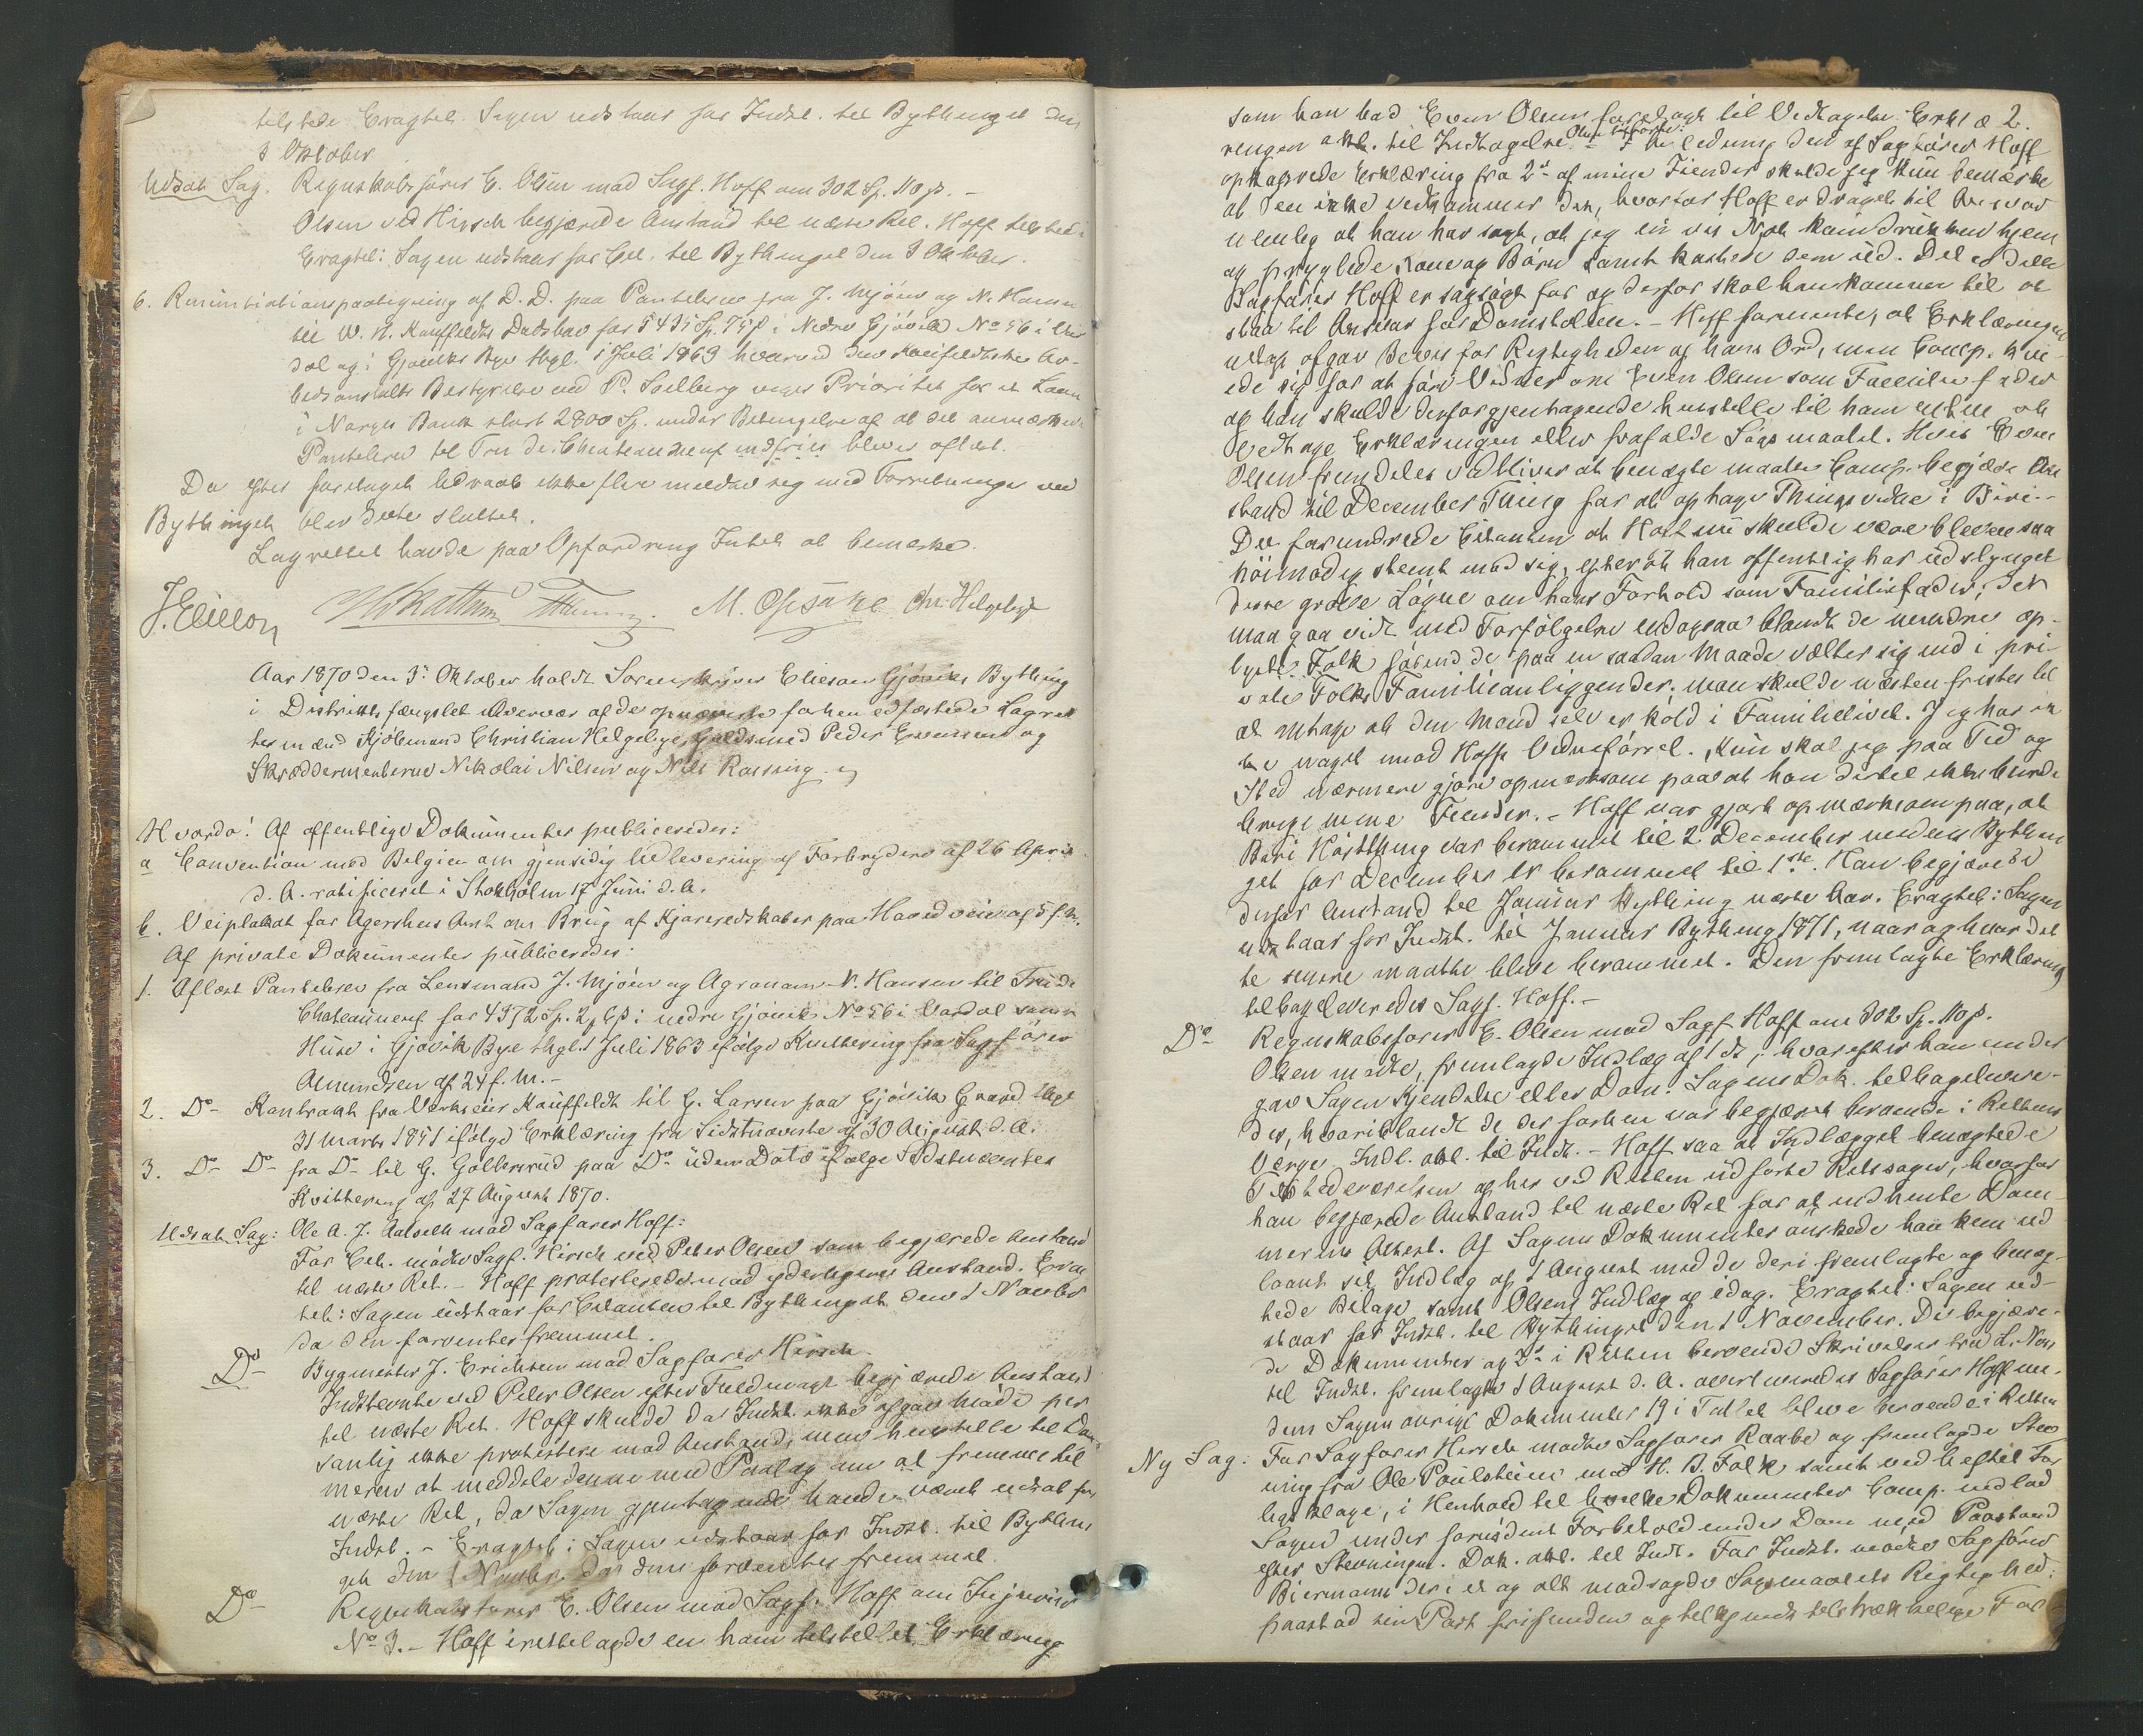 tilstede Eragtet: Sagen udstaar for Indst. til Bythinget den
3 Oktober
Udsat Sag. Regnskabsfører E. Olsen mod Sagf. Hoff om 302 Sp. 110 s. –
Olsen ved Hirsch begjærede Anstand til næste Ret. Hoff tilstede
Eragtet: Sagen udstaar for Cit. til Bythinget den 3 Oktober.
6. Renuntiationspaategning af D. D. paa Pantebrev fra J. Mjöen og N. Hansen
til W. N. Kauffeldts Dødsbo for 5435 Sp. 75 s i Nedre Gjövik No 56 i Var
dal og i Gjøviks Bye thgl. 1 Juli 1863 hvorved den Kauffeldtske Ar-
beidsanstalts Bestyrelse ved P. Sollberg viger Prioritet for et Laan
i Norges Bank stort 2800 Sp. under Betingelse af at det anmærkede
Pantebrev til Fru de Chateauneuf indfries blev aflæst.
Da efter foretaget Udraab ikke flere meldte sig med Forretninger ved
Bythinget blev dette sluttet.
Lagrettet havde paa Opfordring Intet at bemærke.
J. Elieson M. Opsahl Chr. Helgebye
Aar 1870 den 3die Oktober holdt Sorenskriver Elieson Gjöviks Bything
i Distriktsfængslet i Overvær af de opnævnte forhen edfæstede Lagrett
tesmænd Kjöbmand Christian Helgebye, Guldsmed Peder Evensen og
Skræddermesterne Nikolai Nilsen og Nils Rossing.
Hvorda: Af offentlige Dokumenter publiceredes:
a Convention med Belgien om gjensidig Udlevering af Forbrydere af 26 April
d. A. ratificeret i Stokholm 17 Juni d. A.
b. Veiplakat for Agershus Amt om Brug af Kjøreredskaber paa Hovedveie af 5 f. M.
Af private Dokumenter publiceredes:
1. Aflæst Pantebrev fra Lensmand J. Mjöen og Agronom N. Hansen til Fru de
Chateauneuf for 4372 Sp. 2 s i nedre Gjövik No 56 i Vardal samt
Huse i Gjøvik Bye thgl. 1 Juli 1863 ifølge Kvittering fra Sagfører
Amundsen af 24 f. M. –
2. Do Kontrakt fra Værkseier Kauffeldt til G. Larsen paa Gjövik Gaard thgl
31 Marts 1851 ifølge Erklæring fra Sidstnævnte af 30 August d. A.
3. Do Do fra Do til G. Gollersrud paa Do uden Dato ifølge Sidstnævntes
Kvittering af 27 August 1870.
Udsat Sag: Ole A. J. Aalvold mod Sagfører Hoff:
For Cit. mødte Sagf. Hirsch ved Peter Olsen som begjærede Anstand
til næste Ret. – Hoff protesterede mod yderligere Anstand. Erag
tet: Sagen udstaar for Citanten til Bythinget den 1 Novbr
da den forventes fremmet.
Do Bygmester J. Erichsen mod Sagfører Hirsch
Indstevnte ved Peter Olsen efter Fuldmagt begjærede Anstand
til næste Ret. Hoff skulde da Indst. ikke afgav Møde per
sonlig ikke protestere mod Anstand, men henstille til Dom-
meren at meddele denne med Paalæg om at fremme til
næste Ret, da Sagen gjentagende havde været udsat for
Indst. – Eragtet: Sagen udstaar for Indst. til Bythin
get den 1 Novbr. da den forventes fremmet.
Do Regnskabsfører E. Olsen mod Sagf. Hoff om Injurier
No 3. – Hoff irettelagde en ham tilstillet Erklæring
2.
som han bad Even Olsen forelagt til Vedtagelse Erklæ
ringen akl. til Indtagelse. – I Anledning den af Sagfører Hoff
oplagrede Erklæring fra 2de af mine Fiender skulde jeg kun bemærke
at den ikke vedkommer det, hvorfor Hoff er dragen til Ansvar
nemlig at han har sagt, at jeg en vis Nat kom drukken hjem
og pryglede Kone og Børn samt kastede dem ud. Det er dette
Sagfører Hoff er sagsøgt for og derfor skal han komme til at
staa til Ansvar for Domstolene. – Hoff formente, at Erklæringen
nok afgav Bevis for Rigtigheden af hans Ord, men Comp. kvie-
ede sig for at føre Vidner om Even Olsen som Familiefader
og han skulde derfor gjentagende henstille til ham enten at
vedtage Erklæringen eller frafalde Søgsmaalet. Hvis Even
Olsen fremdeles vedbliver at benægte maatte Comp. begjære An
stand til December Thing for at optage Thingsvidne i Biri. –
Det forundrede Citanten at Hoff nu skulde være bleven saa
höimodig stemt mod sig, efterat han offentlig har udslynget
denne grove Løgne om hans Forhold som Familiefader; det
maa gaa vidt med Forfølgelse endogsaa blandt de mindre op-
lyste Folk førend de paa en saadan Maade vælter sig ind i pri-
vate Folks Familieanliggender; man skulde næsten fristes til
at antage at den Mand selv er kold i Familielivet. Jeg har ik
ke noget mod Hoffs Vidneførsel. Kun skal jeg paa Tid og
Sted nærmere gjøre opmærksom paa at han dertil ikke burde
bruge mine Fiender. – Hoff var gjort opmærksom paa, at
Biri Høstthing var berammet til 2 December medens Bythin
get for December er berammet til 1ste. Han begjærede
derfor Anstand til Januar Bything næste Aar. Eragtet: Sagen
udstaar for Indst. til Januar Bything 1871, naar og hvor det
te senere maatte blive berammet. Den fremlagte Erklæring
tilbageleveredes Sagf. Hoff. –
Do Regnskabsfører E. Olsen mod Sagf. Hoff om 302 Sp. 110 s.
Olsen mødte, fremlagde Indlæg af 1 ds, hvorefter han under
gav Sagen Kjendelse eller Dom. Sagens Dok. tilbagelevere-
des, hvoriblandt de der forhen var begjæret beroende i Rettens
Værge. Indl. akl. til Indt. – Hoff saa at Indlægget benægtede
Tilstedeværelsen af her ved Retten udførte Retssager, hvorfor
han begjærede Anstand til næste Ret for at indhente Dom
merens Attest. Af Sagens Dokumenter ønskede han kun ud
laant sit Indlæg af 1 August med de deri fremlagte og benæg-
tede Bilage samt Olsens Indlæg af idag. Eragtet: Sagen ud-
staar for Indst. til Bythinget den 1 November. De begjære-
de Dokumenter og 2de i Retten beroende Skrivelser fra
til Indst. fremlagte 1 August d. A. overleveredes Sagfører Hoff me-
dens Sagens øvrige Dokumenter 19 i Tallet bleve beroende i Retten
Ny Sag: For Sagfører Hirsch mødte Sagfører Raabe og fremlagde Stev
ning fra Ole Poulsheim mod H. B. Falk samt vedheftet For
ligsklage, i Henhold til hvilke Dokumenter Comp. indlod
Sagen under fornødent Forbehold under Dom med Paastand
efter Stevningen. Dok. akl. til Indt. For Indst. mødte Sagfører
Biermann der i et og alt modsagde Søgsmaalets Rigtighed;
paastod sin Part frifunden og